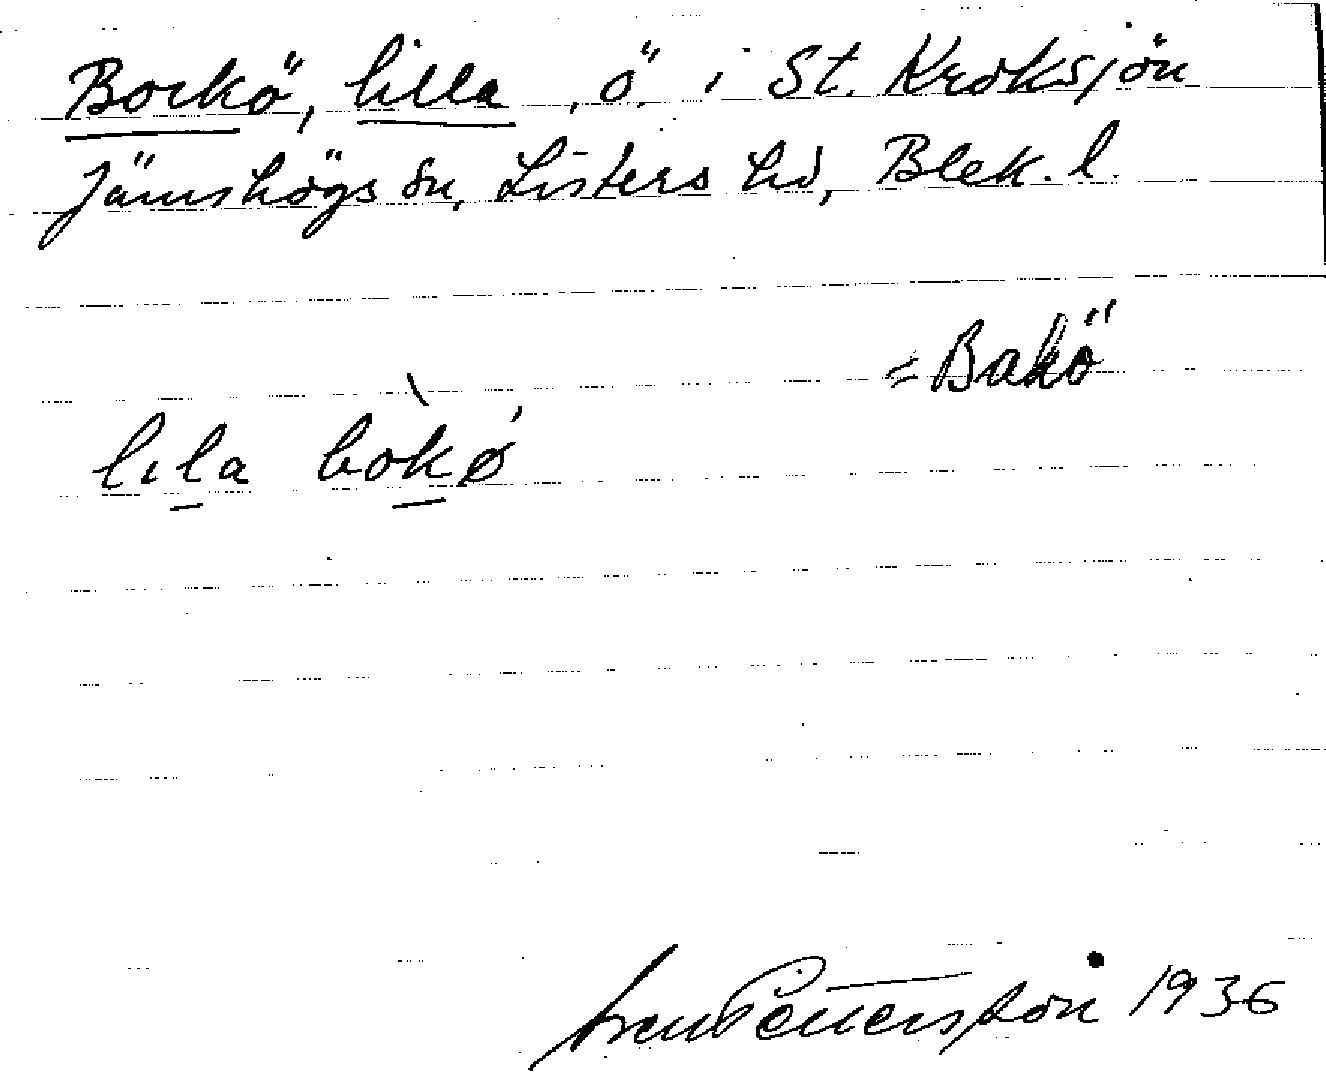 Bockö, lilla, ö. i St. Kroksjön
Jämshögs sn, Listers hd, Blek. l.
= Bakö
lıla bòkø´
Pettersson 1936